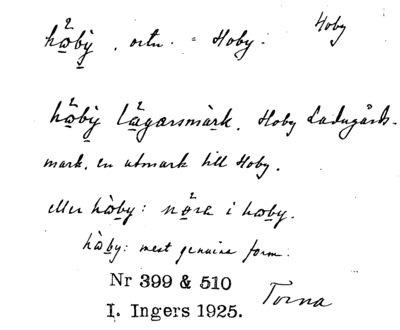 Hoby
hœ̀by̆ . ortn. = Hoby.
hœ̀by̆ lå̀garsmàrk. Hoby Ladugårds-
mark, en utmark till Hoby.
eller hœ̀by: nö̀ra i hœby.
hœ̀by: mest genuina form.
Nr 399 & 510
I. Ingers 1925.
Torna